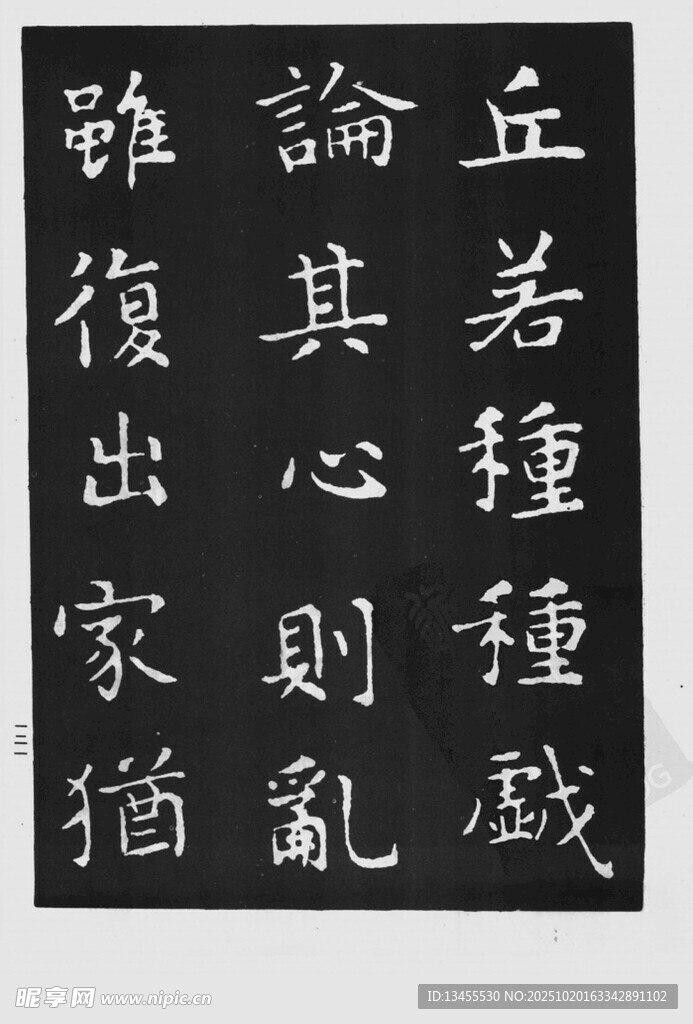 丘若種種戯
論其心則亂
雖復出家猶
二三
昵享网 www.nipic.cn
ID:13455530 NO:20251020163342891102